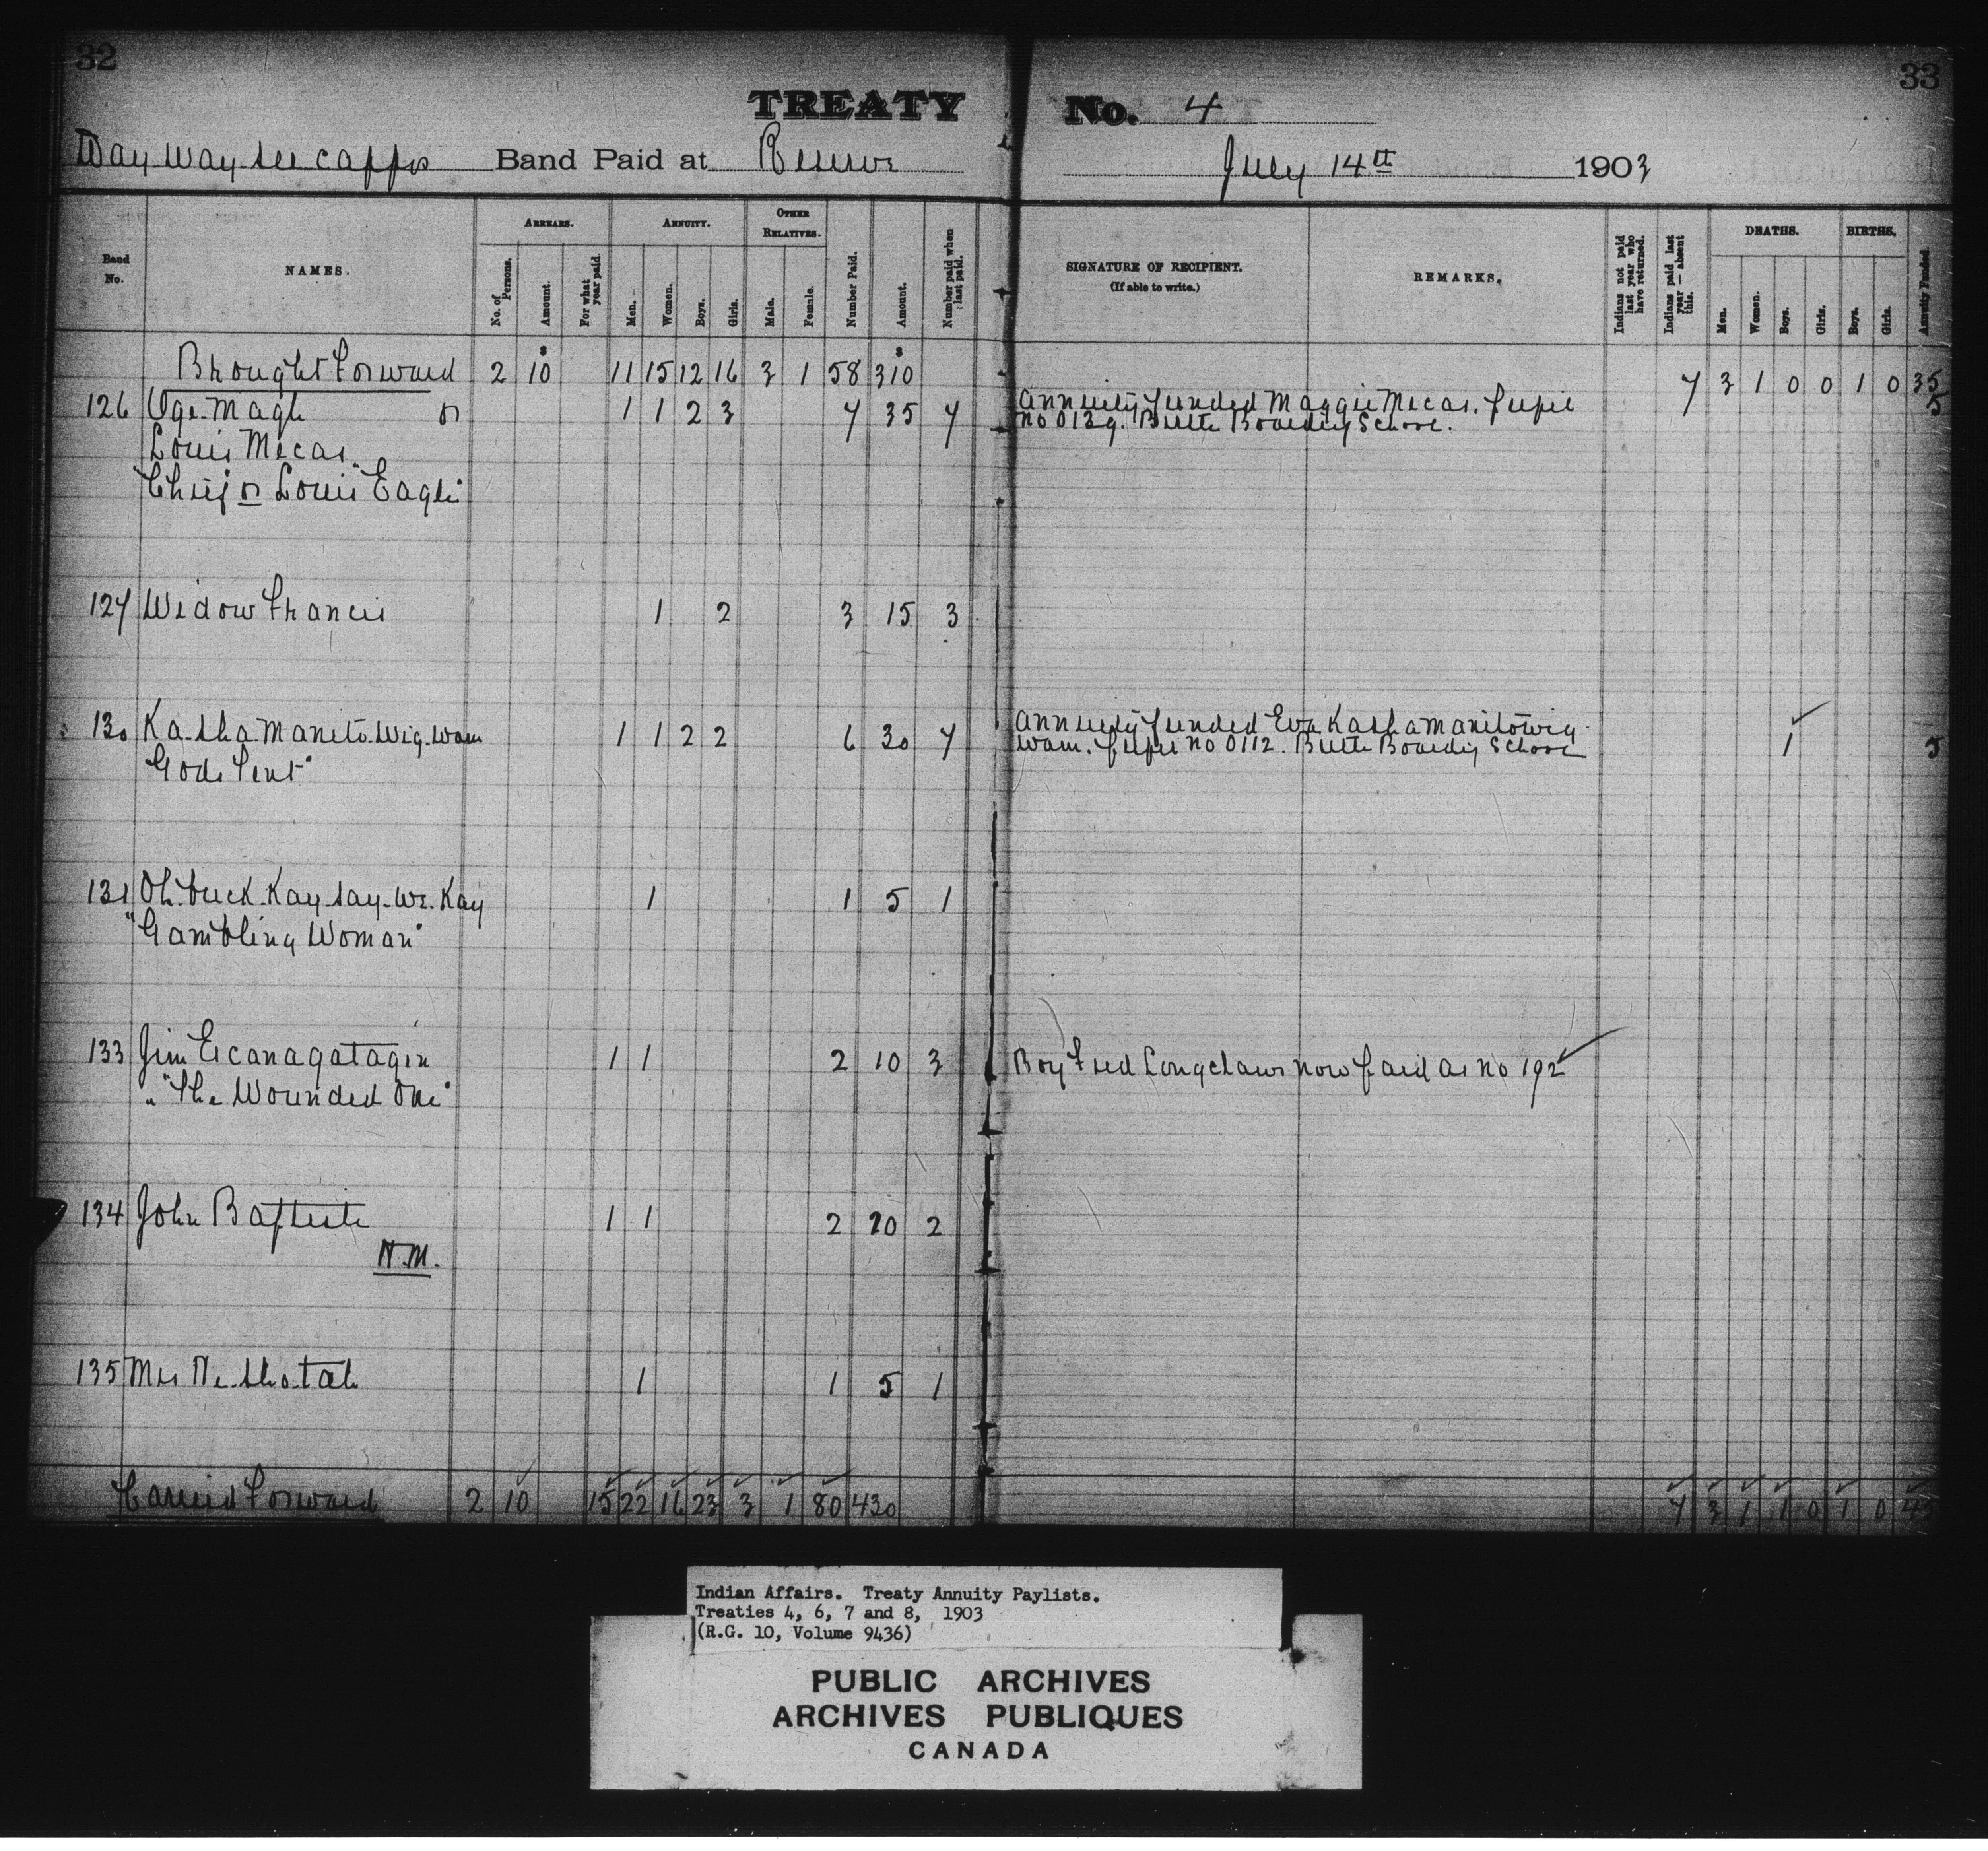 32
33
TREATY No. 4
Way way see cappo Band Paid at Reserve July 14th 1903
Band No.
NAMES.
ARREARS.
No. of Persons.
Amount.
For what year paid.
ANNUITY.
Men.
Women.
Boys.
Girls.
OTHER RELATIVES.
Male.
Female.
Number Paid.
Amount.
Number paid when last paid.
SIGNATURE OF RECIPIENT.
(If able to write.)
REMARKS.
Indians not paid last year who have returned.
Indians paid last year — absent this.
DEATHS.
Men.
Women.
Boys.
Girls.
BIRTHS.
Boys.
Girls.
Annuity Funded.
Brought Forward 2 10 11 15 12 16 3 1 58 310 7 3 1 0 0 1 0 35
126 Oge-Magh or 1 1 2 3 7 35 7 Annuity funded Maggie Mecas. pupil 5
Louis Mecas. no 0139. Birtle Boarding School.
"Chief or Louis Eagle"
127 Widow Francis 1 2 3 15 3
130 Ka-sha Maneto-Wig-Wam 1 1 2 2 6 30 7 Annuity funded Eva Kashamanitowig- 1 5
"Gods Tent" wam. pupil no 0112. Birtle Boarding School
131 Oh-tuck-Kay-say-We-Kay 1 1 5 1
"Gambling Woman"
133 Jim Eicanagatagin 1 1 2 10 3 Boy Fred Longclaws now paid as no 192
"The Wounded One"
134 John Baptiste 1 1 2 20 2
N.M.
135 Mrs Ne-sho-tah 1 1 5 1
Carried Forward 2 10 15 22 16 23 3 1 80 430 7 3 1 1 0 1 0 45
Indian Affairs. Treaty Annuity Paylists.
Treaties 4, 6, 7 and 8, 1903
(R.G. 10, Volume 9436)
PUBLIC ARCHIVES
ARCHIVES PUBLIQUES
CANADA